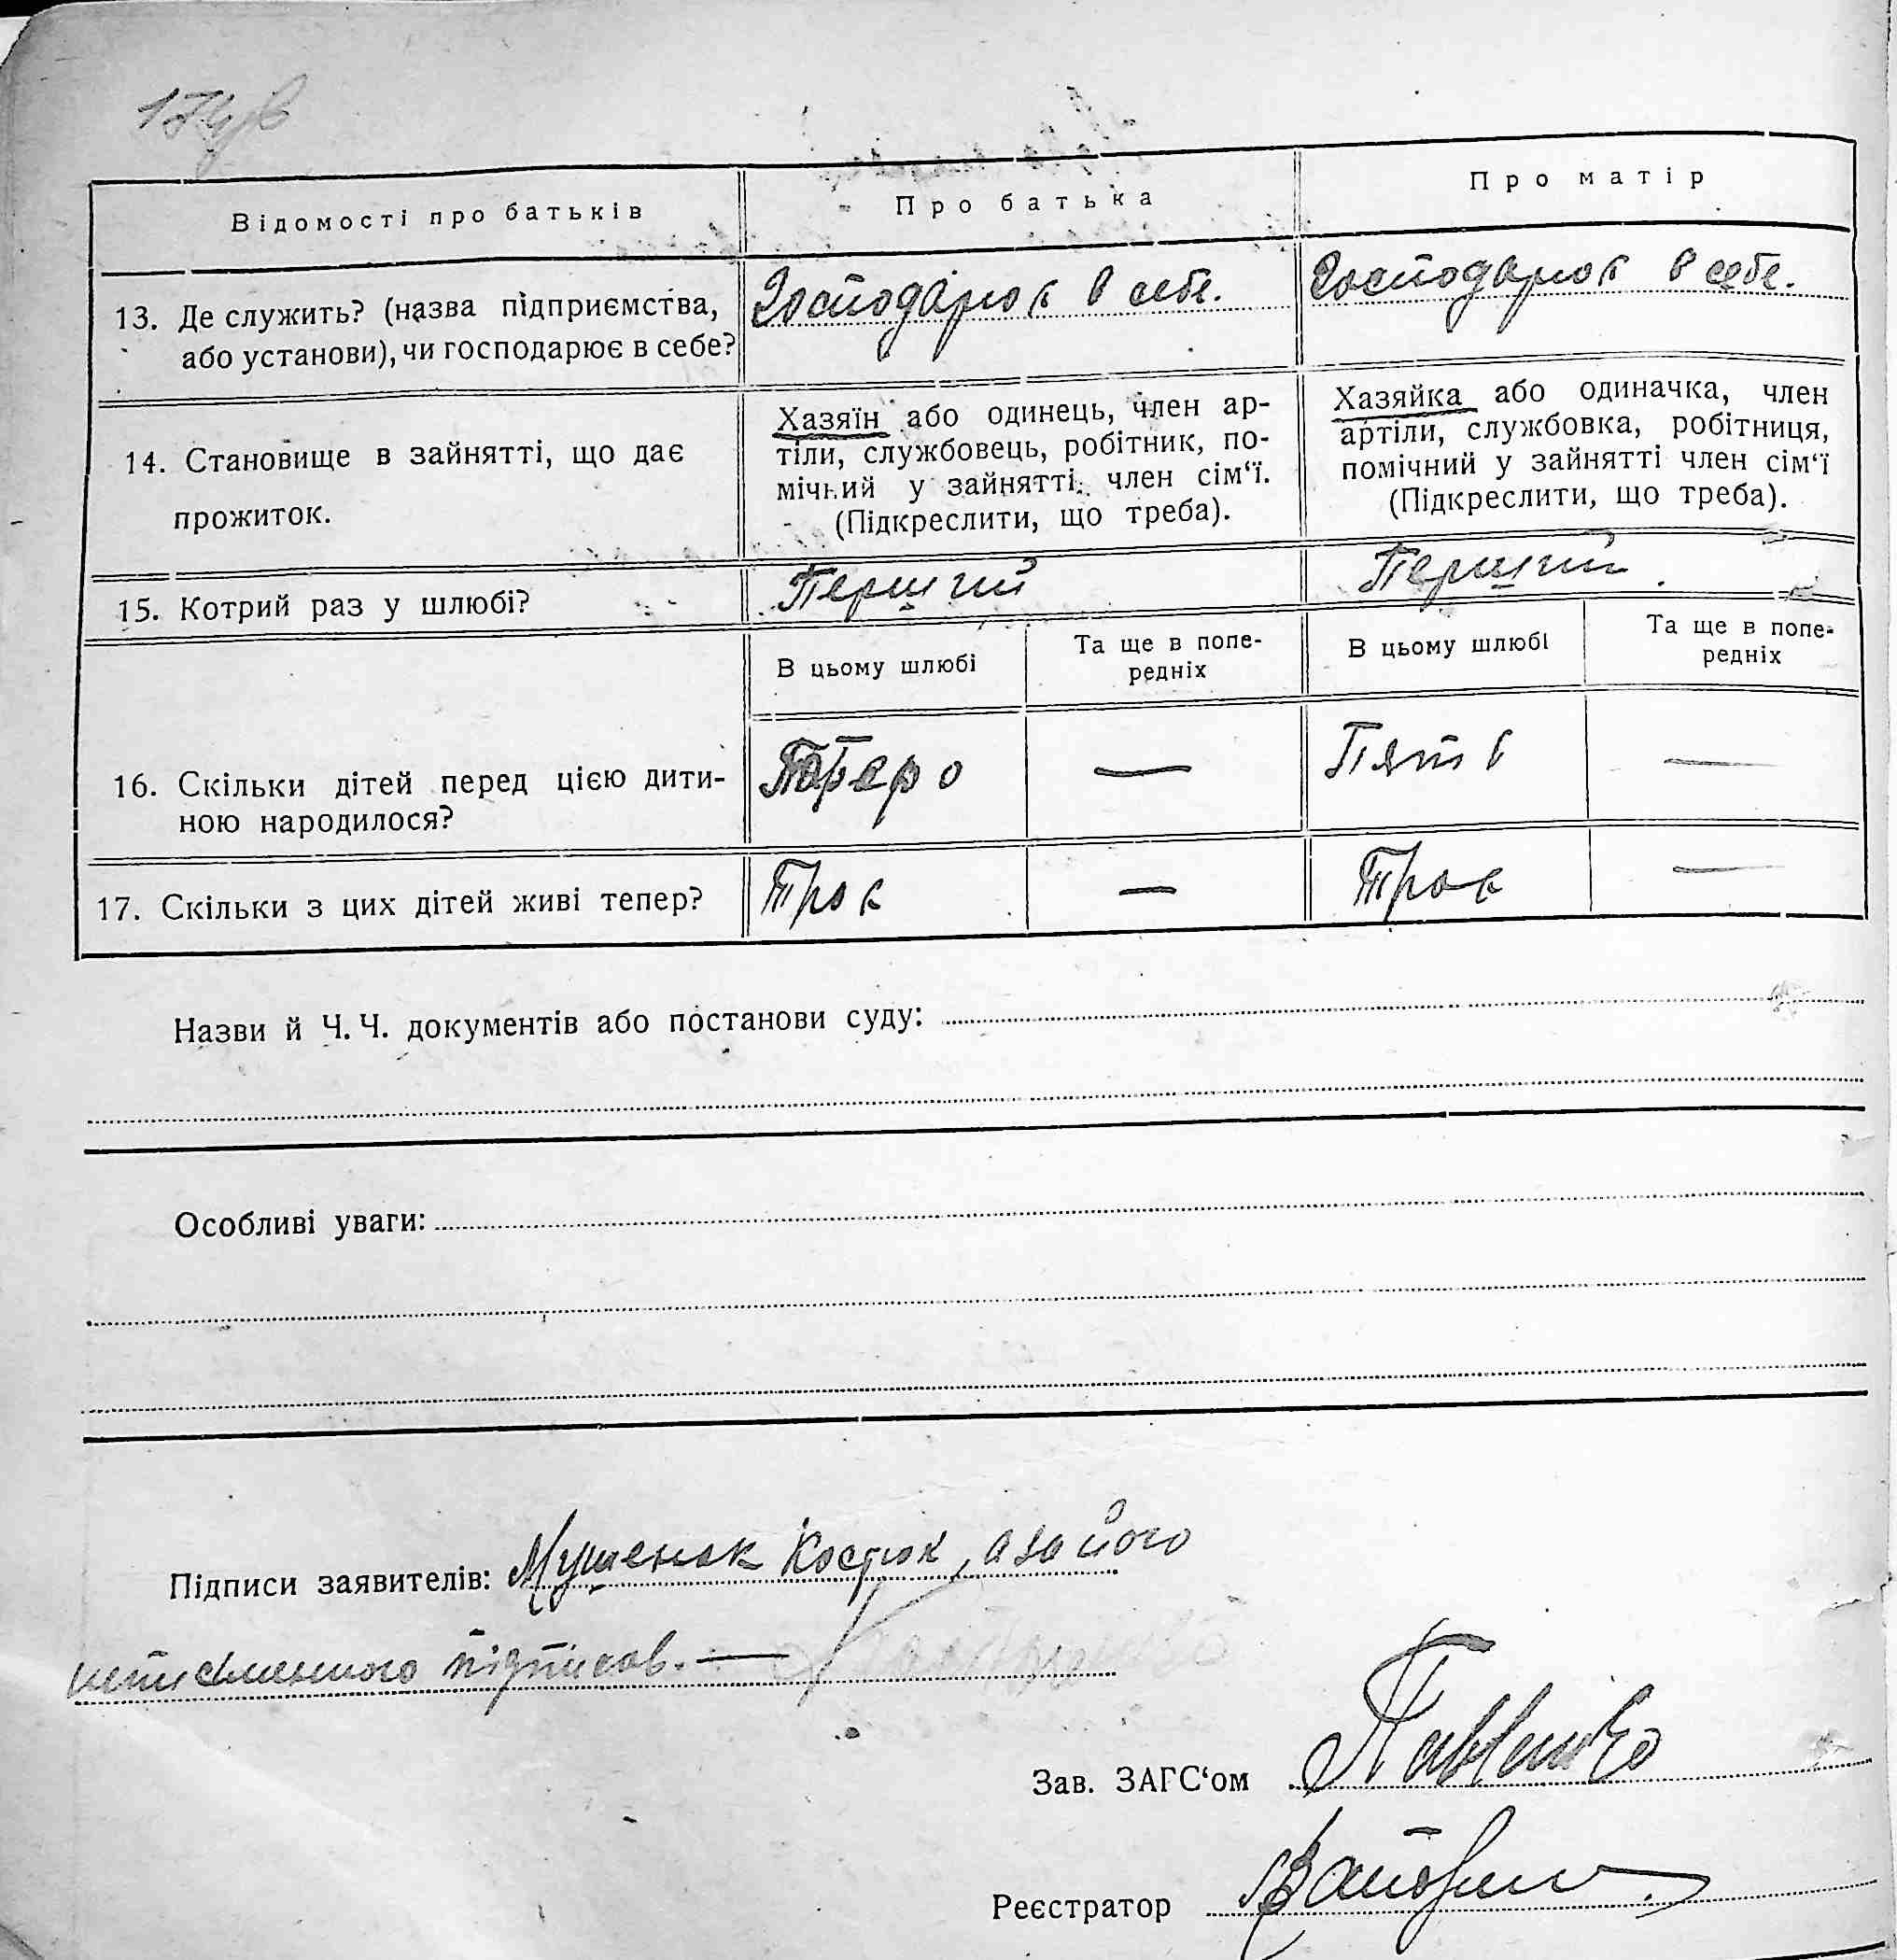 Відомості про батьків
Про батька
Про матір
13. Де служить? (назва підприємства, або установи), чи господарює в себе?
Господарює в себе.
Господарює в себе.
14. Становище в зайнятті, що дає прожиток.
Хазяїн або одинець, член ар-
тіли, службовець, робітник, по-
мічний у зайнятті член сім‘ї.
(Підкреслити, що треба).
Хазяйка або одиначка, член
артіли, службовка, робітниця,
помічний у зайнятті член сім‘ї
(Підкреслити, що треба).
15. Котрий раз у шлюбі?
Перший
Перший.
В цьому шлюбі
Та ще в попе-
редніх
В цьому шлюбі
Та ще в попе-
редніх
16. Скільки дітей перед цією дити-
ною народилося?
—
Пять
—
17. Скільки з цих дітей живі тепер?
Троє
—
Троє
—
Назви й Ч. Ч. документів або постанови суду:
Особливі уваги:
Підписи заявителів: Мушенок Костюк, а за його
неписьменного підписав. —
Зав. ЗАГС‘ом Павленко
Реєстратор